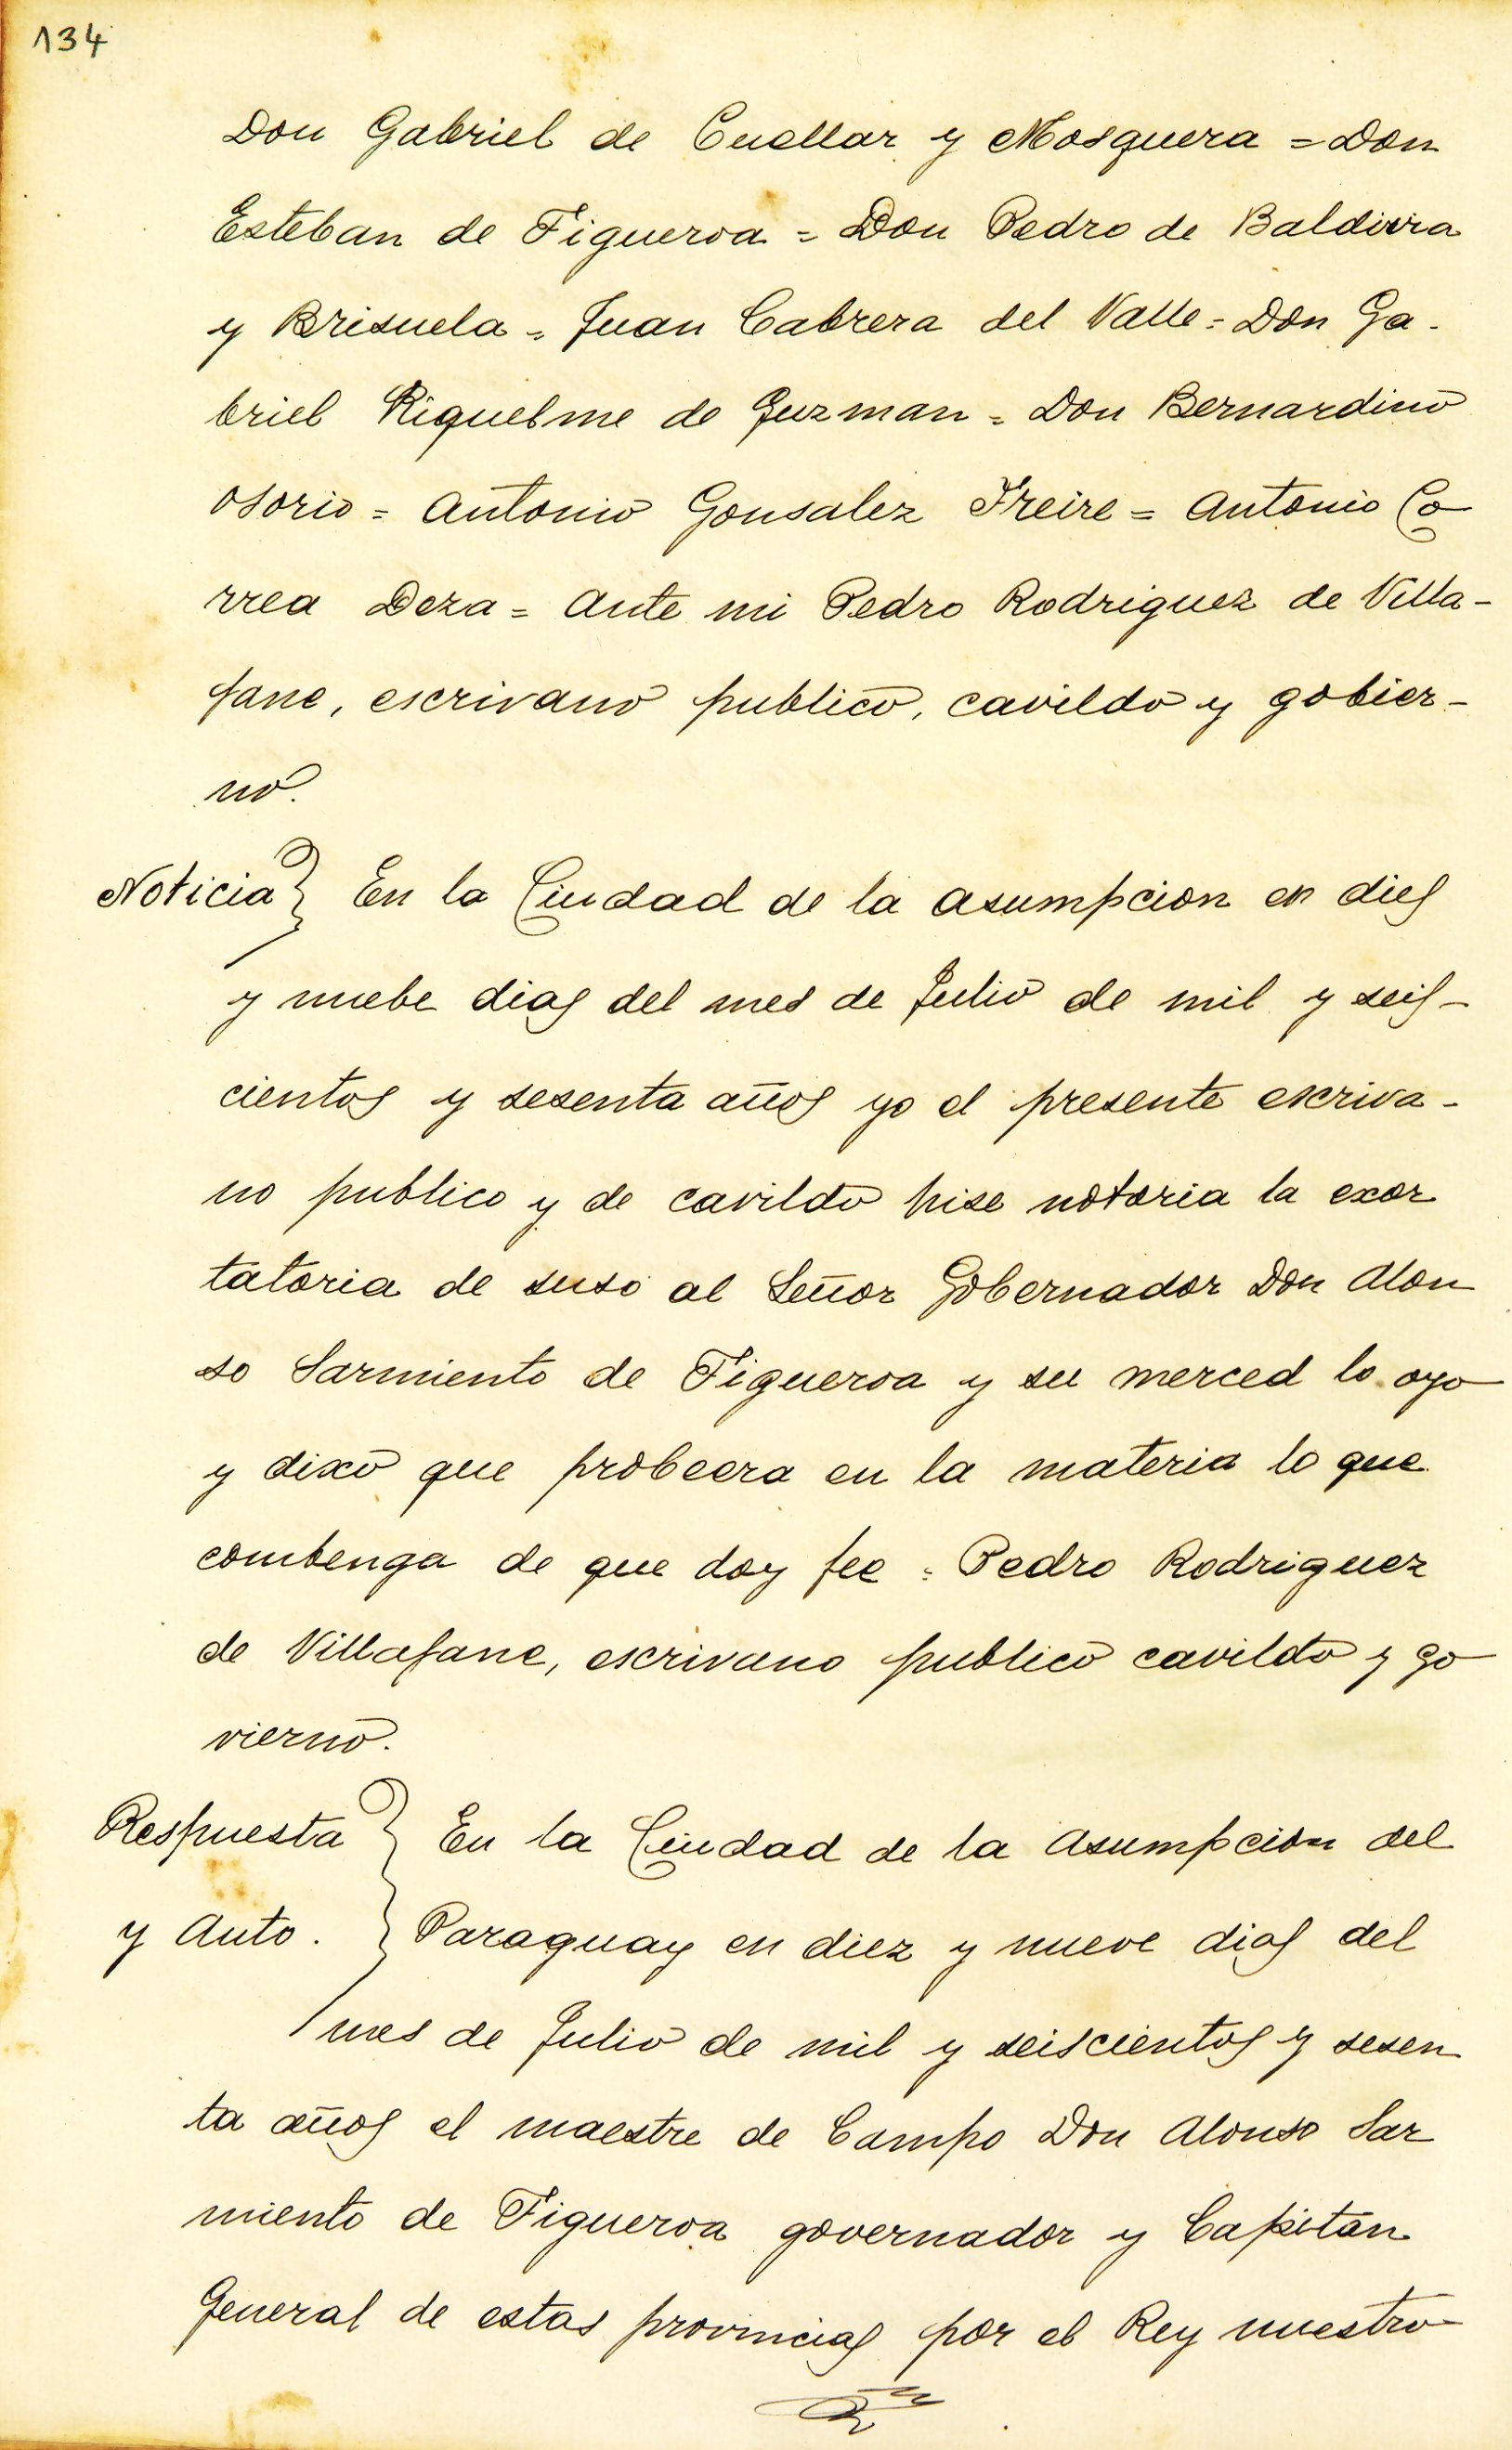 134
Don Gabriel de Cuellar y Mosquera = Don
Esteban de Figueroa = Don Pedro de Baldivia
y Brisuela = Juan Cabrera del Valle = Don Ga-
briel Riquelme de Guzman = Don Bernardino
Osorio = Antonio Gonsalez Freire = Antonio Co
rrea Deza = Ante mi Pedro Rodriguez de Villa-
fane, escrivano publico, cavildo y gobier-
no.
Noticia } En la Ciudad de la Asumpcion en dies
y nuebe dias del mes de Julio de mil y seis-
cientos y sesenta años yo el presente escriva-
no publico y de cavildo hise notoria la exor
tatoria de suso al Señor Gobernador Don Alon
so Sarmiento de Figueroa y su merced lo oyo
y dixo que probeera en la materia lo que
combenga de que doy fee = Pedro Rodriguez
de Villafane, escrivano publico cavildo y go
vierno.
Respuesta } En la Ciudad de la Asumpcion del
y Auto. } Paraguay en diez y nueve dias del
mes de Julio de mil y seiscientos y sesen
ta años el maestre de Campo Don Alonso Sar
miento de Figueroa governador y Capitan
General de estas provincias por el Rey nuestro